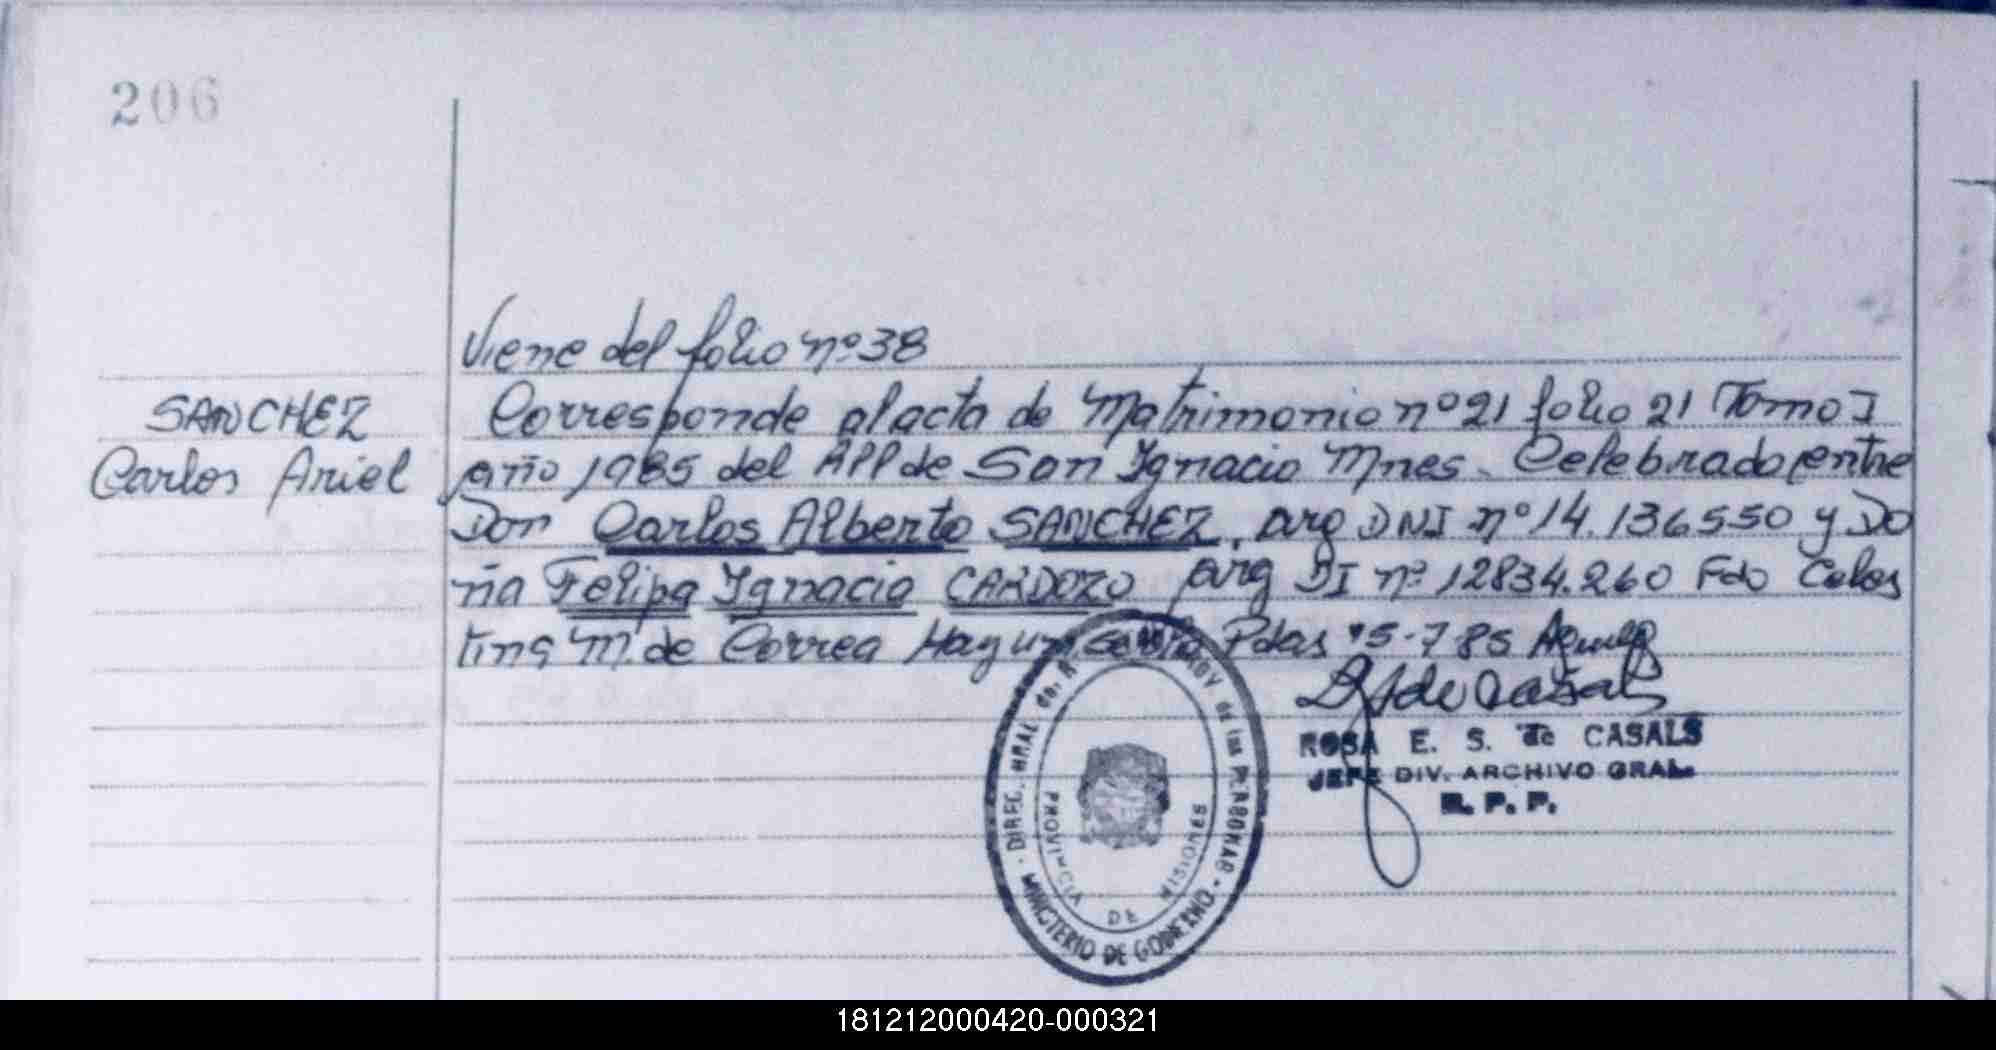 206
Viene del folio nº 38
SANCHEZ
Carlos Ariel
Corresponde al acta de Matrimonio nº 21 folio 21 Tomo I
año 1985 del APP de San Ignacio Mnes. Celebrado entre
Don Carlos Alberto SANCHEZ, arg DNI nº 14.136550 y Do
ña Felipa Ignacia CARDOZO arg DI nº 12834.260 Fdo Celes
tina M. de Correa Hay un sello Pdas 15-7 85
R S de Casals
ROSA E. S. de CASALS
JEFE DIV. ARCHIVO GRAL.
R. P. P.
DIREC. GRAL. de las PERSONAS
MINISTERIO DE GOBIERNO
PROVINCIA DE MISIONES
181212000420-000321